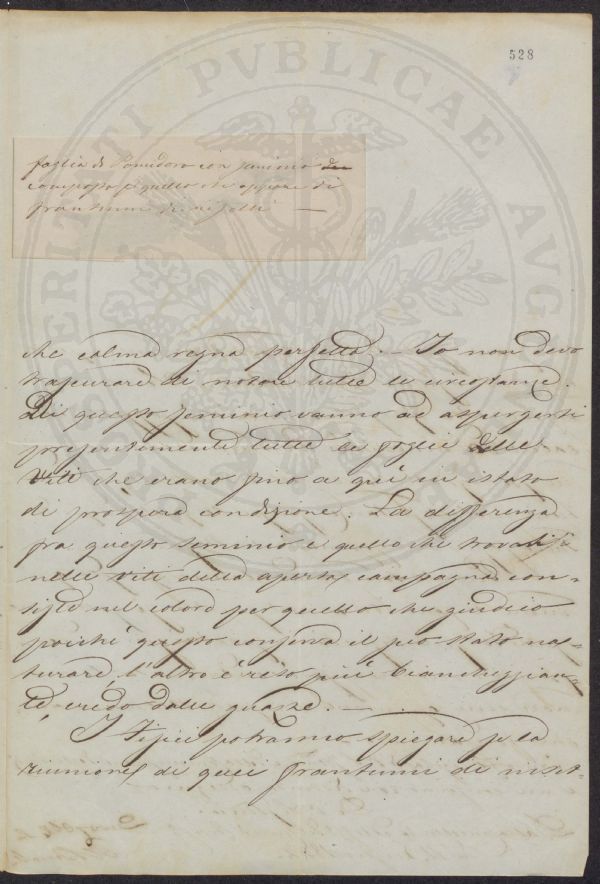 528
foglia di Pomidoro con seminio
composto di quello che appare di
frantumi di insetti —
che calma regna perfetta. — Io non devo
trascurare di notare tutte le circostanze.
Di questo seminio vanno ad aspergersi
presentemente tutte le foglie delle
Viti che erano fino a qui in istato
di prospera condizione. La differenza
fra questo seminio e quello che trovasi
nelle viti della aperta campagna con-
siste nel colore per quello che giudico
poichè questo conserva il suo stato na-
turare l'altro è reso più biancheggian-
te, credo dalle guazze. —
I Fisici potranno spiegare se la
riunione di quei frantumi di inset-